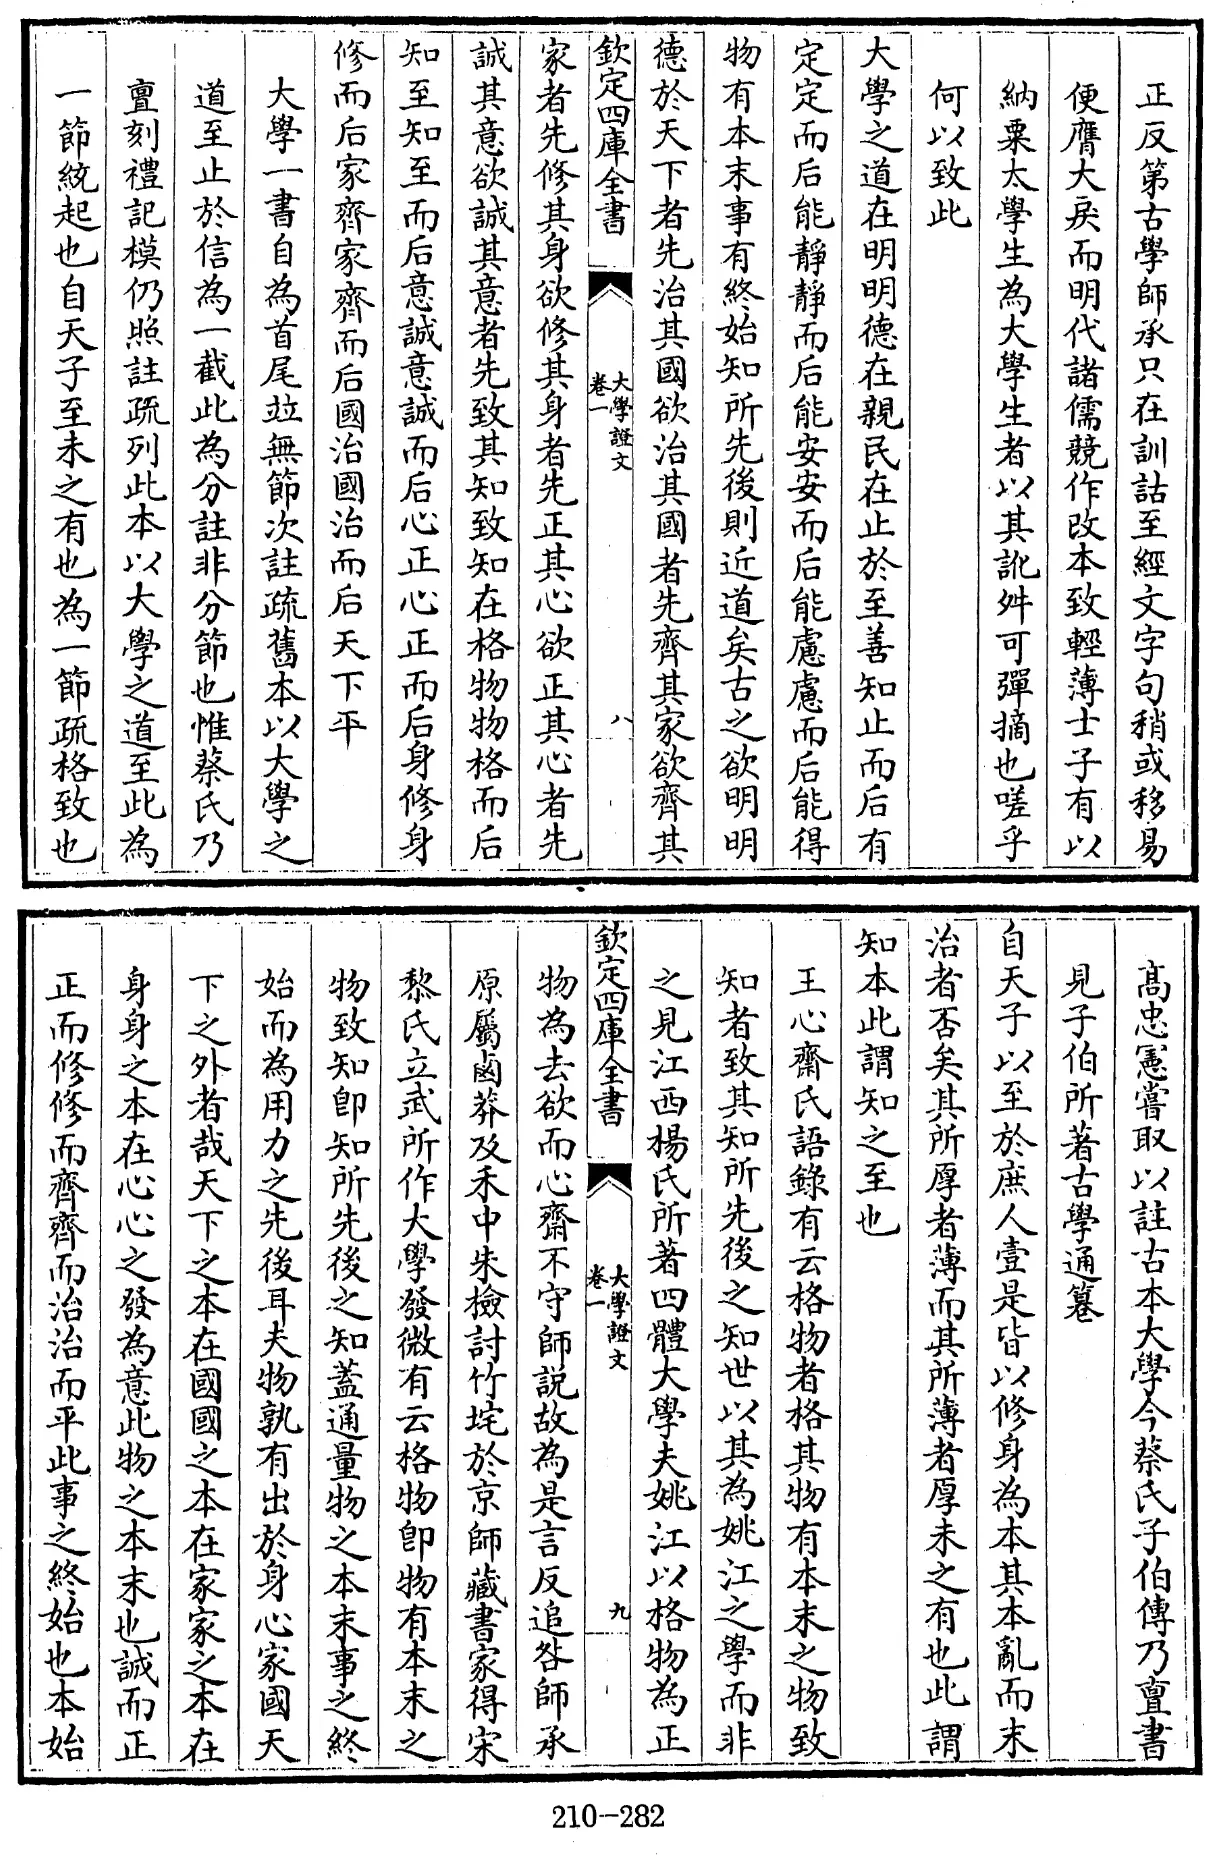 正反第古學師承只在訓詁至經文字句稍或移易
便膺大戾而明代諸儒競作改本致輕薄士子有以
納粟太學生為大學生者以其訛舛可彈摘也嗟乎
何以致此
大學之道在明明德在親民在止於至善知止而后有
定定而后能靜靜而后能安安而后能慮慮而后能得
物有本末事有終始知所先後則近道矣古之欲明明
德於天下者先治其國欲治其國者先齊其家欲齊其
欽定四庫全書
大學證文
卷一
八
家者先修其身欲修其身者先正其心欲正其心者先
誠其意欲誠其意者先致其知致知在格物物格而后
知至知至而后意誠意誠而后心正心正而后身修身
修而后家齊家齊而后國治國治而后天下平
大學一書自為首尾竝無節次註疏舊本以大學之
道至止於信為一截此為分註非分節也惟蔡氏乃
亶刻禮記模仍照註疏列此本以大學之道至此為
一節統起也自天子至未之有也為一節疏格致也
高忠憲嘗取以註古本大學今蔡氏子伯傳乃亶書
見子伯所著古學通篹
自天子以至於庶人壹是皆以修身為本其本亂而末
治者否矣其所厚者薄而其所薄者厚未之有也此謂
知本此謂知之至也
王心齋氏語錄有云格物者格其物有本末之物致
知者致其知所先後之知世以其為姚江之學而非
之見江西楊氏所著四體大學夫姚江以格物為正
欽定四庫全書
大學證文
卷一
九
物為去欲而心齋不守師説故為是言反追咎師承
原屬鹵莽及禾中朱檢討竹垞於京師藏書家得宋
黎氏立武所作大學發微有云格物即物有本末之
物致知即知所先後之知蓋通量物之本末事之終
始而為用力之先後耳夫物孰有出於身心家國天
下之外者哉天下之本在國國之本在家家之本在
身身之本在心心之發為意此物之本末也誠而正
正而修修而齊齊而治治而平此事之終始也本始
210-282